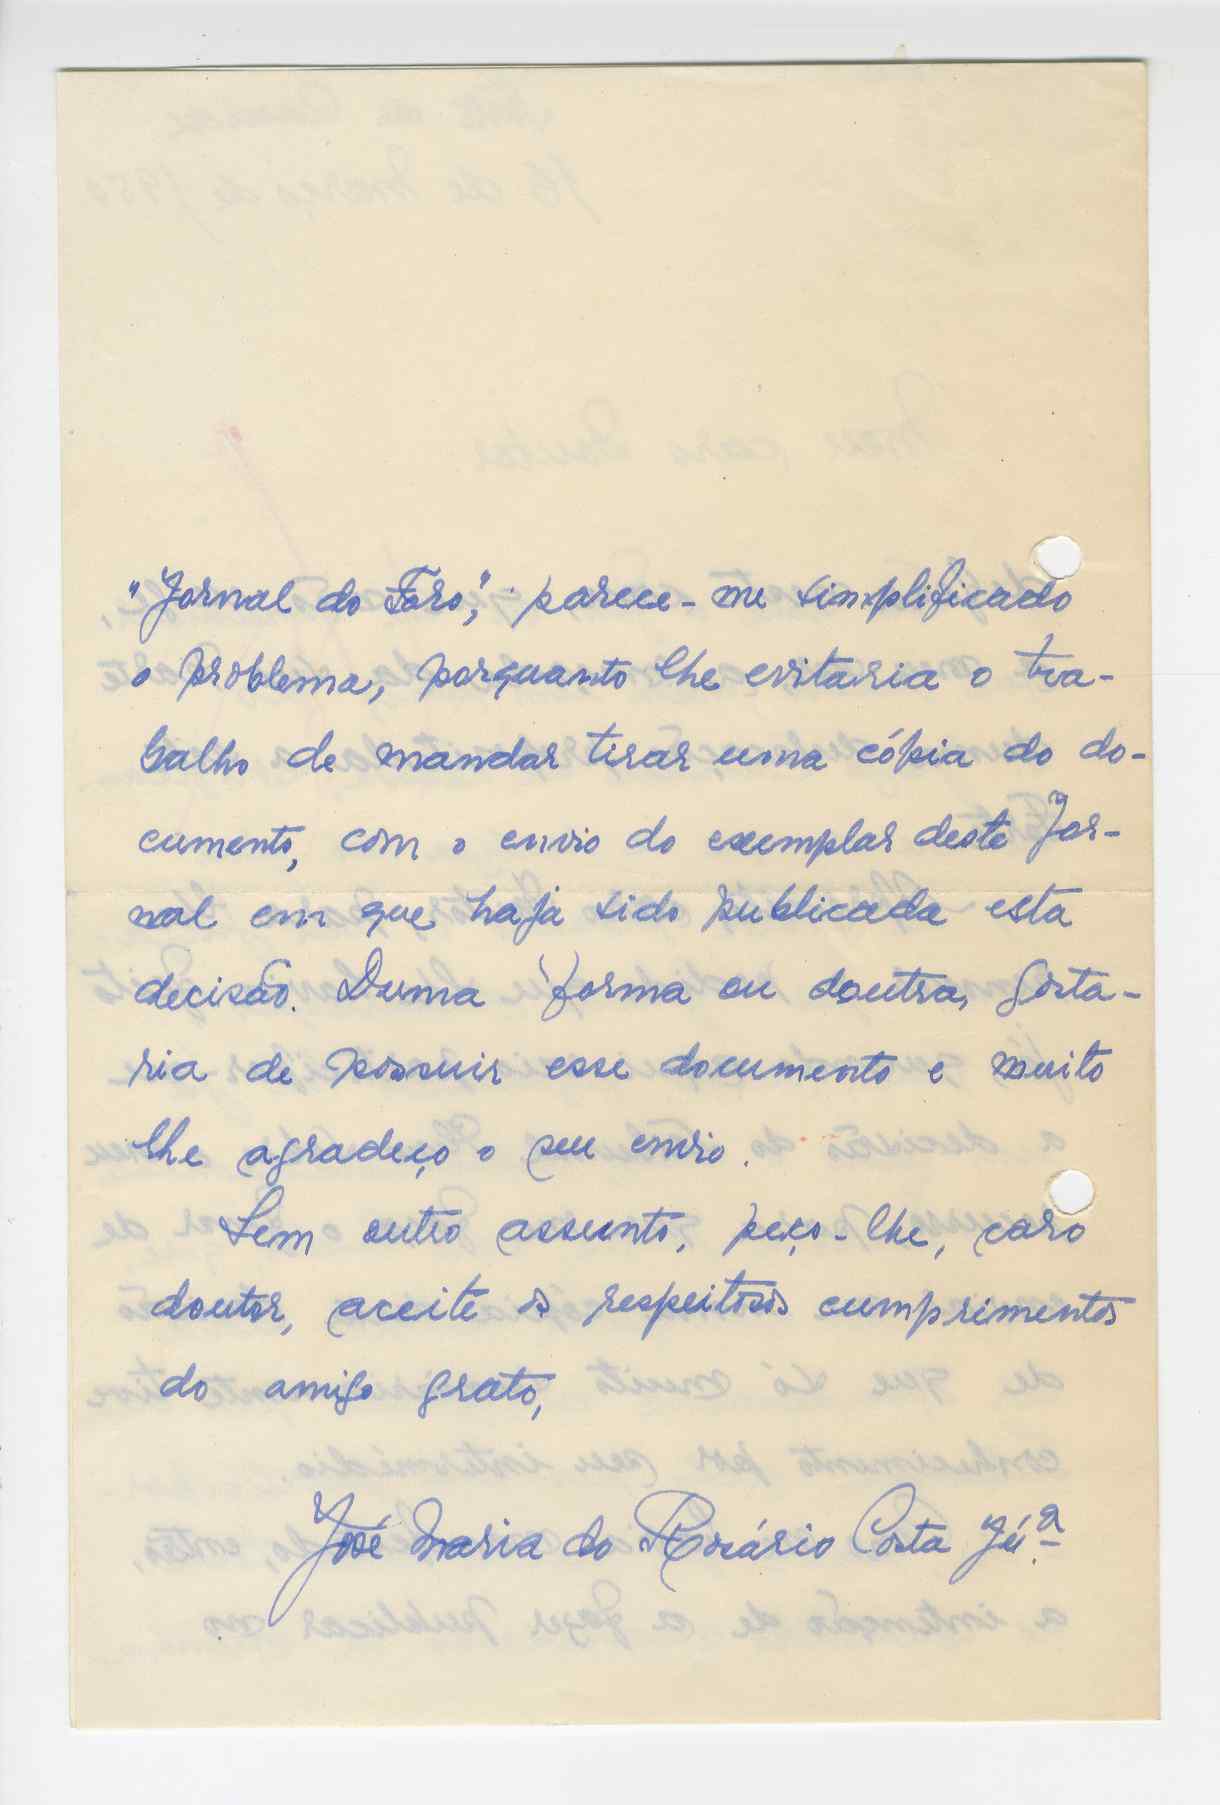 "Jornal do Foro", parece-me simplificado
o problema, porquanto lhe evitaria o tra-
balho de mandar tirar uma cópia do do-
cumento, com o envio do exemplar deste Jor-
nal em que haja sido publicada esta
decisão. Duma forma ou doutra, gosta-
ria de possuir esse documento e muito
lhe agradeço o seu envio.
Sem outro assunto, peço-lhe, caro
doutor, aceite os respeitosos cumprimentos
do amigo grato,
José Maria do Rosário Costa Jú.ª